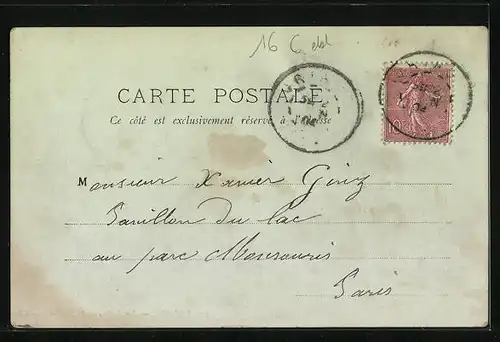 16
CARTE POSTALE
Ce côté est exclusivement réservé à l'adresse
Monsieur Xavier
Pavillon du lac
au parc Montsouris
Paris